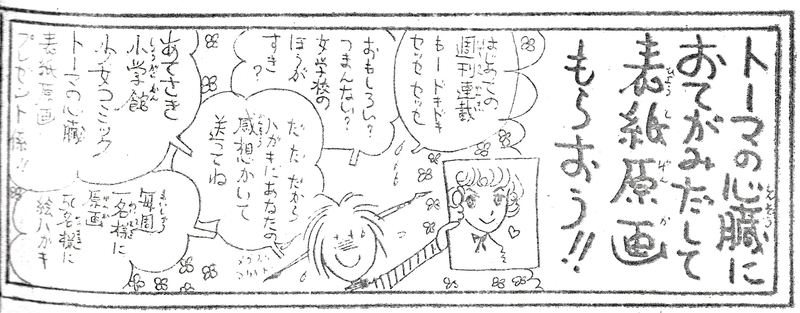 トーマの心臓に
おてがみだして
表紙原画
もらおう!!
はじめての
週刊連載
もードキドキ
セッセッセッ
おもしろい?
つまんない?
女学校の
ほうが
すき?
だ だ だから
ハガキにあなたの
感想かいて
送ってね
あてさき
小学館
少女コミック
トーマの心臓
表紙原画
プレゼント係!!
毎週
一名様に
原画
50名様に
絵ハガキ